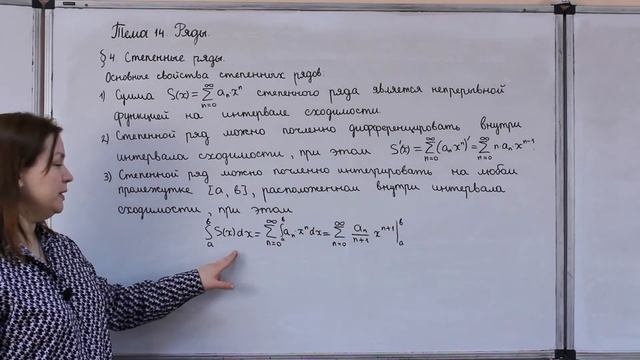 Тема 14. Ряды.
§ 4. Степенные ряды.
Основные свойства степенных рядов:
1) Сумма S(x) = ∑_{n=0}^{∞} a_n x^n степенного ряда является непрерывной
функцией на интервале сходимости
2) Степенной ряд можно почленно дифференцировать внутри
интервала сходимости, при этом S'(x) = ∑_{n=0}^{∞} (a_n x^n)' = ∑_{n=0}^{∞} n·a_n·x^{n-1}.
3) Степенной ряд можно почленно интегрировать на любом
промежутке [a, b], расположенном внутри интервала
сходимости, при этом
∫_a^b S(x)dx = ∑_{n=0}^{∞} ∫_a^b a_n x^n dx = ∑_{n=0}^{∞} a_n/(n+1) x^{n+1} |_a^b